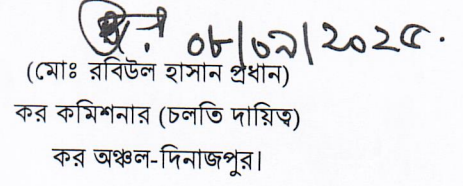 ০৮/০৯/২০২৫.
(মোঃ রবিউল হাসান প্রধান)
কর কমিশনার (চলতি দায়িত্ব)
কর অঞ্চল-দিনাজপুর।